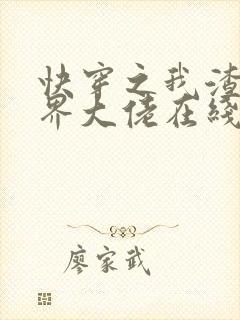 快穿之我渣
界大佬在线
廖家武